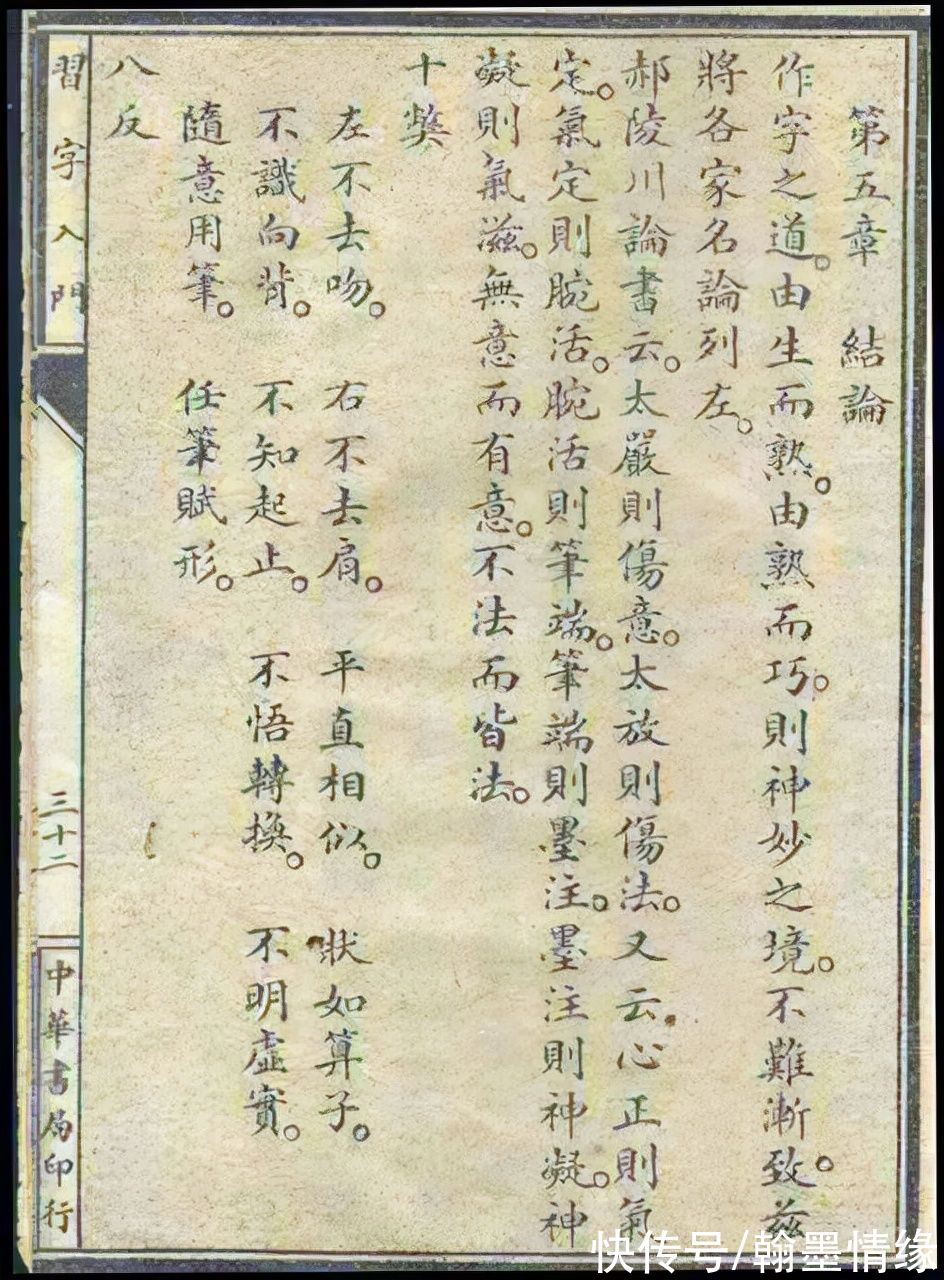 第五章　結論
作字之道。由生而熟。由熟而巧。則神妙之境。不難漸致。茲
將各家名論列左。
郝陵川論書云。太嚴則傷意。太放則傷法。又云。心正則氣
定。氣定則腕活。腕活則筆端。筆端則墨注。墨注則神凝。神
凝則氣滋。無意而有意。不法而皆法。
十獘
左不去吻。　右不去肩。　平直相似。　狀如算子。
不識向背。　不知起止。　不悟轉換。　不明虛實。
隨意用筆。　任筆賦形。
八反
習字入門
三十二
中華書局印行
快传号/翰墨情缘